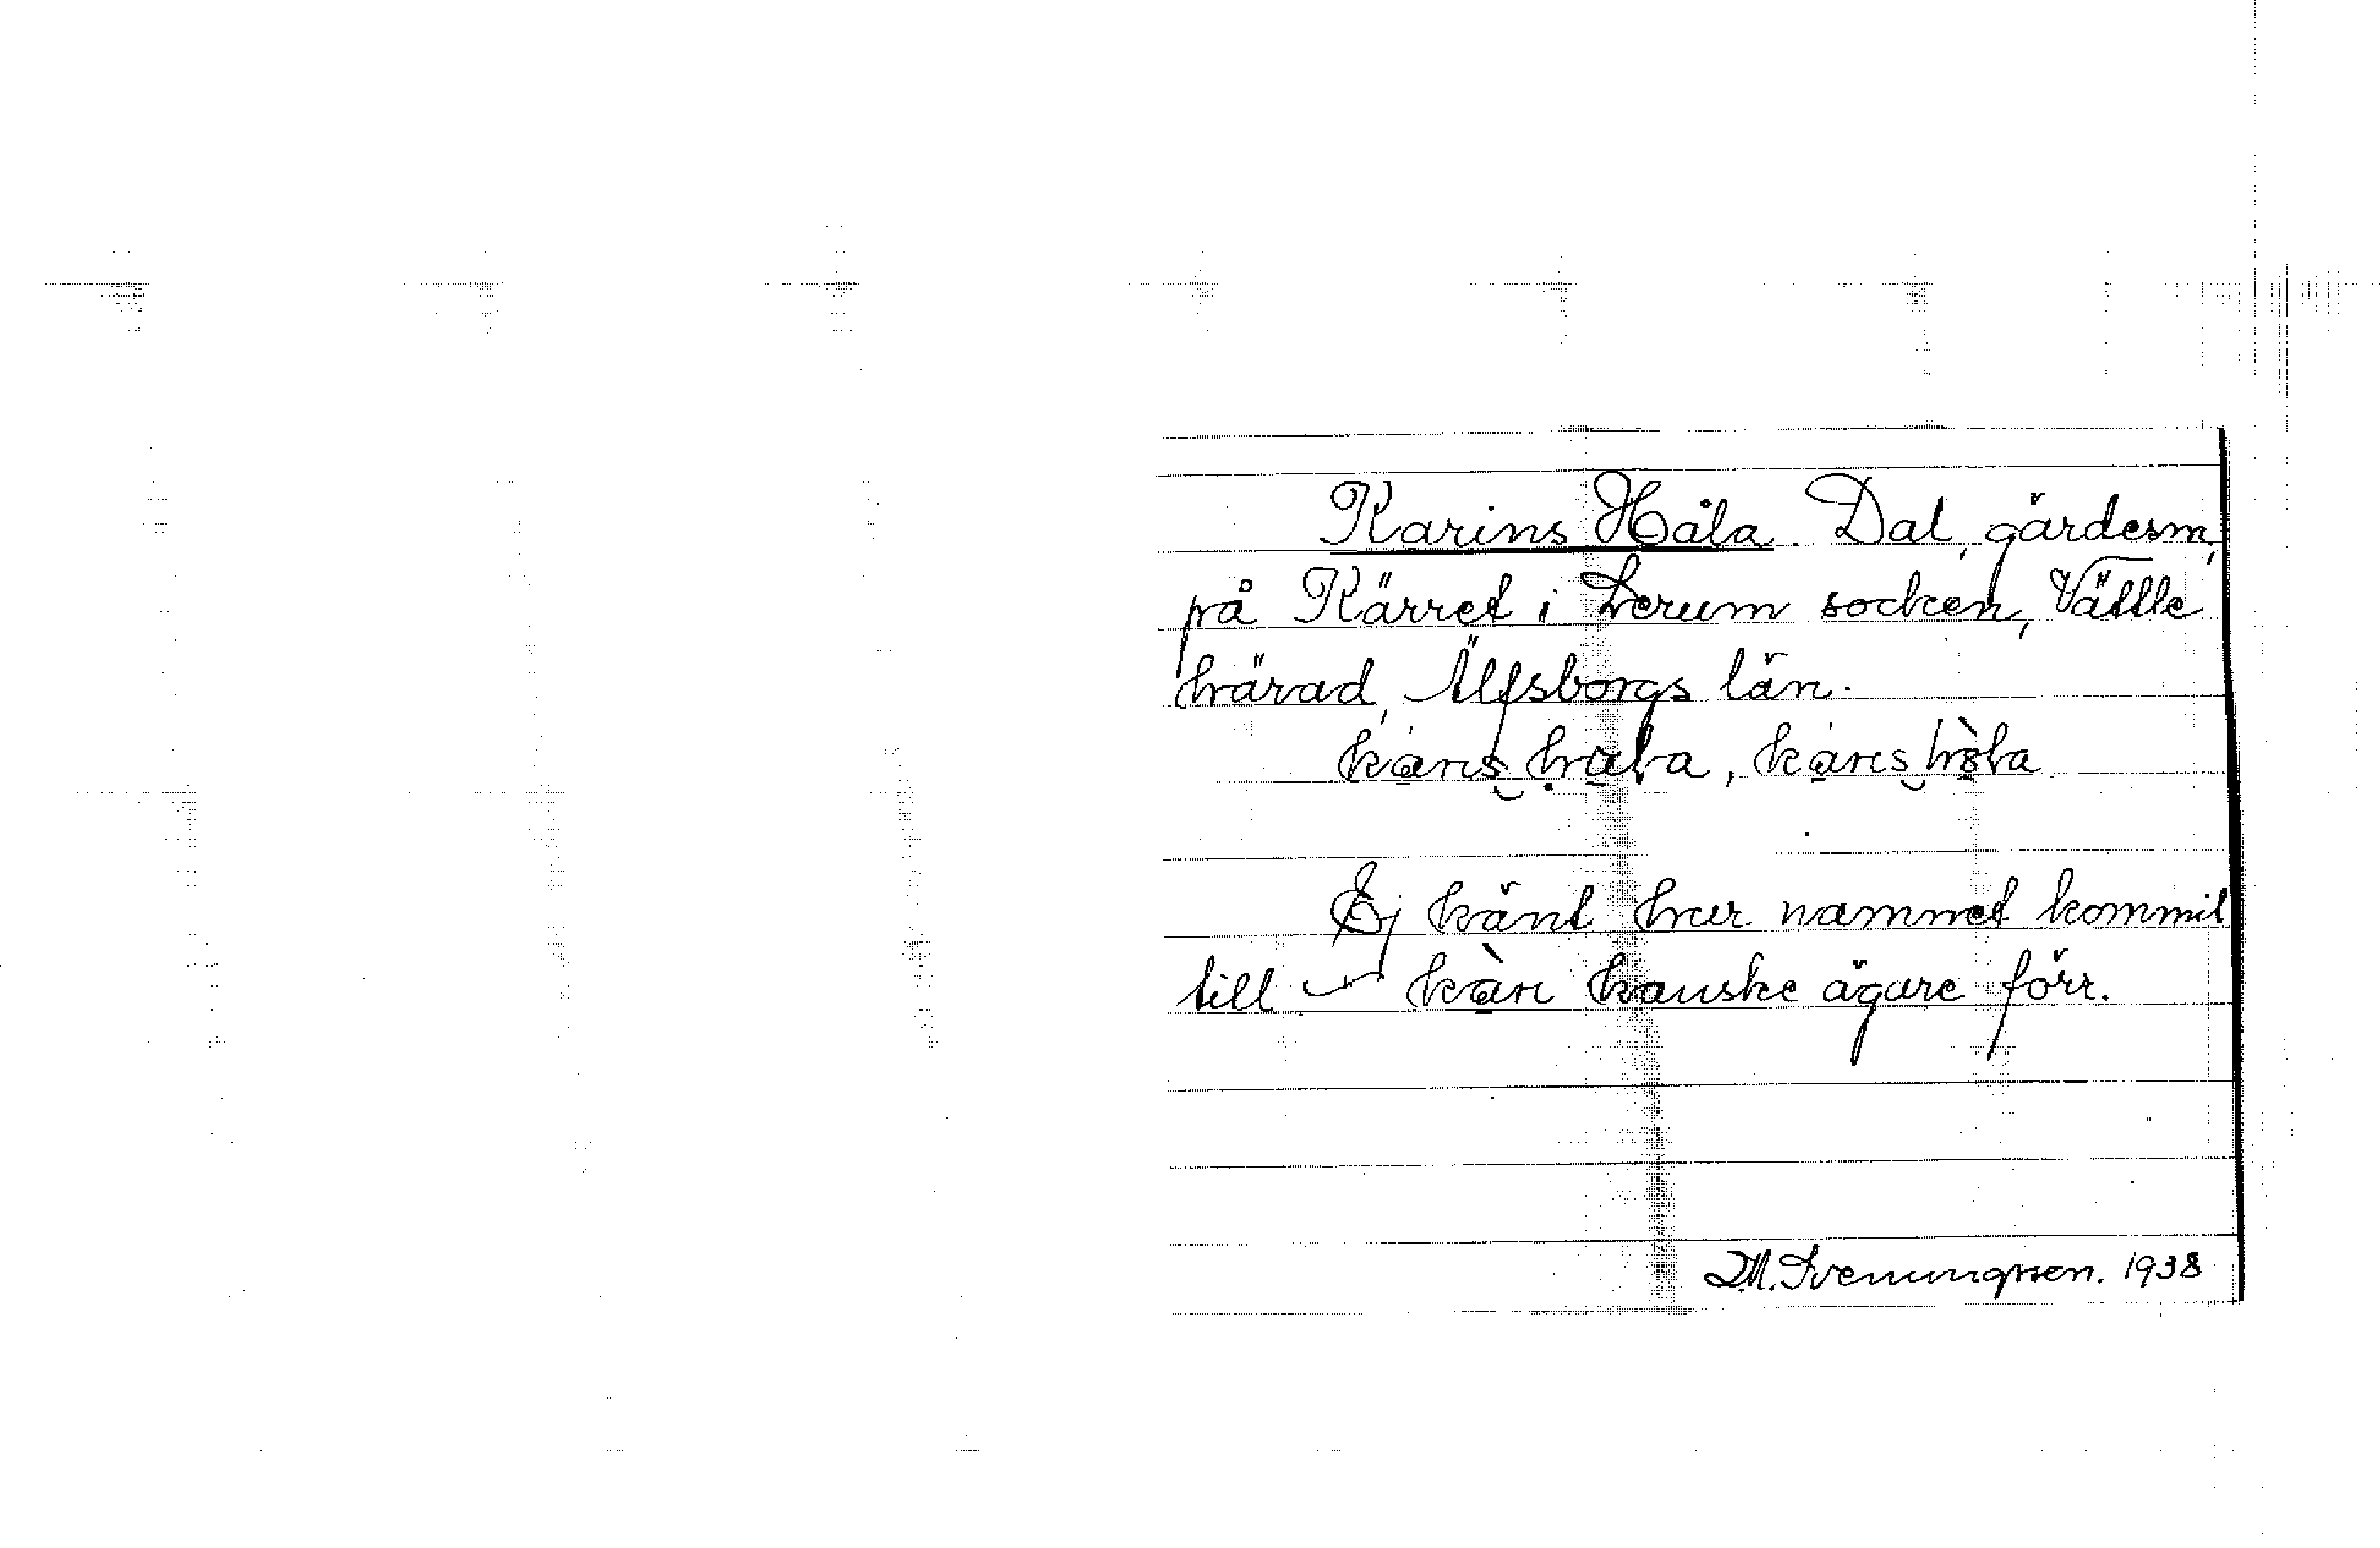 Karins Håla. Dal, gärdesm,
på Kärret i Lerum socken, Vättle
härad, Älfsborgs län.
Ej känt hur namnet kommit
till kanske ägare förr.
D.M. Svenungssen. 1938